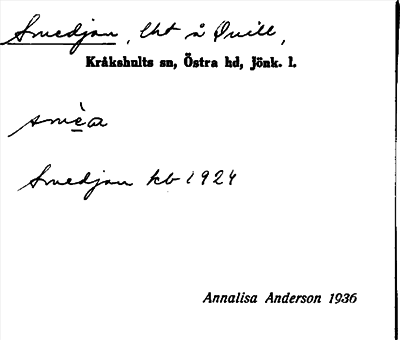 Smedjan, lht å Qvill,
Kråkshults sn, Östra hd, Jönk. l.
smèa
Smedjan kb 1924
Annalisa Anderson 1936